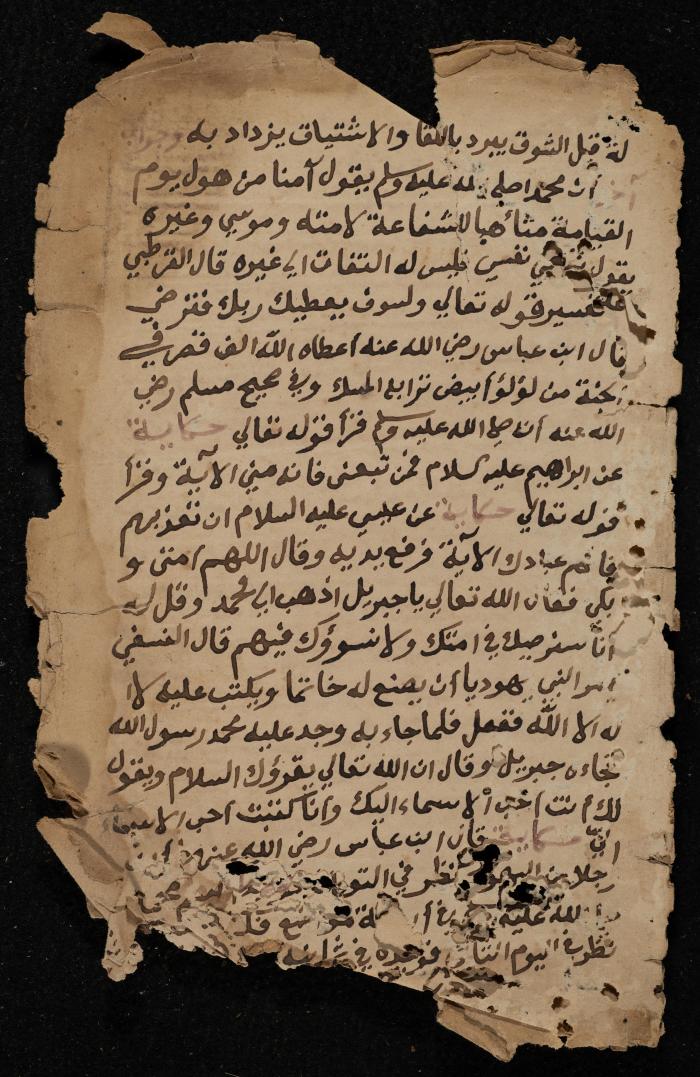 له قيل الشوق يبرد باللقا والاشتياق يزداد به
ان محمدا صلى الله عليه وسلم يقول آمنا من هول يوم
القيامة متأهبا للشفاعة لامته وموسي وغيره
يقول نفسي نفسي فليس له التفات الي غيره قال القرطبي
في تفسير قوله تعالي ولسوف يعطيك ربك فترضي
قال ابن عباس رضي الله عنه اعطاه الله الف قصر في
الجنة من لؤلؤ ابيض ترابه المسك وفي صحيح مسلم رضي
الله عنه ان صلى الله عليه وسلم قرأ قوله تعالي حكاية
عن ابراهيم عليه السلام فمن تبعني فانه مني الآية وقرأ
قوله تعالي حكاية عن عيسي عليه السلام ان تعذبهم
فانهم عبادك الآية فرفع يديه وقال اللهم امتي و
بكي فقال الله تعالي يا جبريل اذهب الي محمد وقل له
انا سنرضيك في امتك ولا نسوؤك فيهم قال النسفي
امر النبي يهوديا ان يصنع له خاتما ويكتب عليه لا ا
له الا الله ففعل فلما جاء به وجد عليه محمد رسول الله
فجاءه جبريل وقال ان الله تعالي يقرؤك السلام ويقول
لك انت احب الاسماء اليك وانا كتبت احب الاسماء
الي حكاية قال ابن عباس رضي الله عنهما ان
رجلا من اليهود نظر في التو
الله عليه في مواضع
نظر في اليوم الثاني فوجده في ثمانية